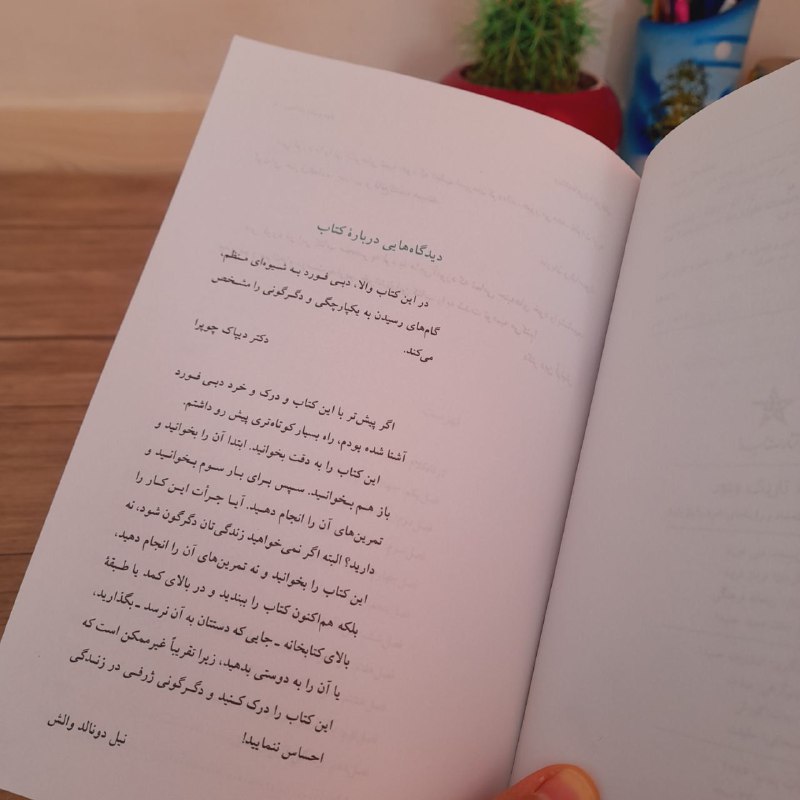 دیدگاه‌هایی دربارهٔ کتاب
در این کتاب والا، دبی فورد به شیوه‌ای منظم،
گام‌های رسیدن به یکپارچگی و دگرگونی را مشخص
می‌کند.
دکتر دیپاک چوپرا
اگر پیش‌تر با این کتاب و درک و خرد دبی فورد
آشنا شده بودم، راه بسیار کوتاه‌تری پیش رو داشتم.
این کتاب را به دقت بخوانید. ابتدا آن را بخوانید و
باز هم بخوانید. سپس برای بار سوم بخوانید و
تمرین‌های آن را انجام دهید. آیا جرأت این کار را
دارید؟ البته اگر نمی‌خواهید زندگی‌تان دگرگون شود، نه
این کتاب را بخوانید و نه تمرین‌های آن را انجام دهید،
بلکه هم‌اکنون کتاب را ببندید و در بالای کمد یا طبقهٔ
بالای کتابخانه ـ جایی که دستتان به آن نرسد ـ بگذارید،
یا آن را به دوستی بدهید، زیرا تقریباً غیرممکن است که
این کتاب را درک کنید و دگرگونی ژرفی در زندگی
احساس ننمایید!
نیل دونالد والش